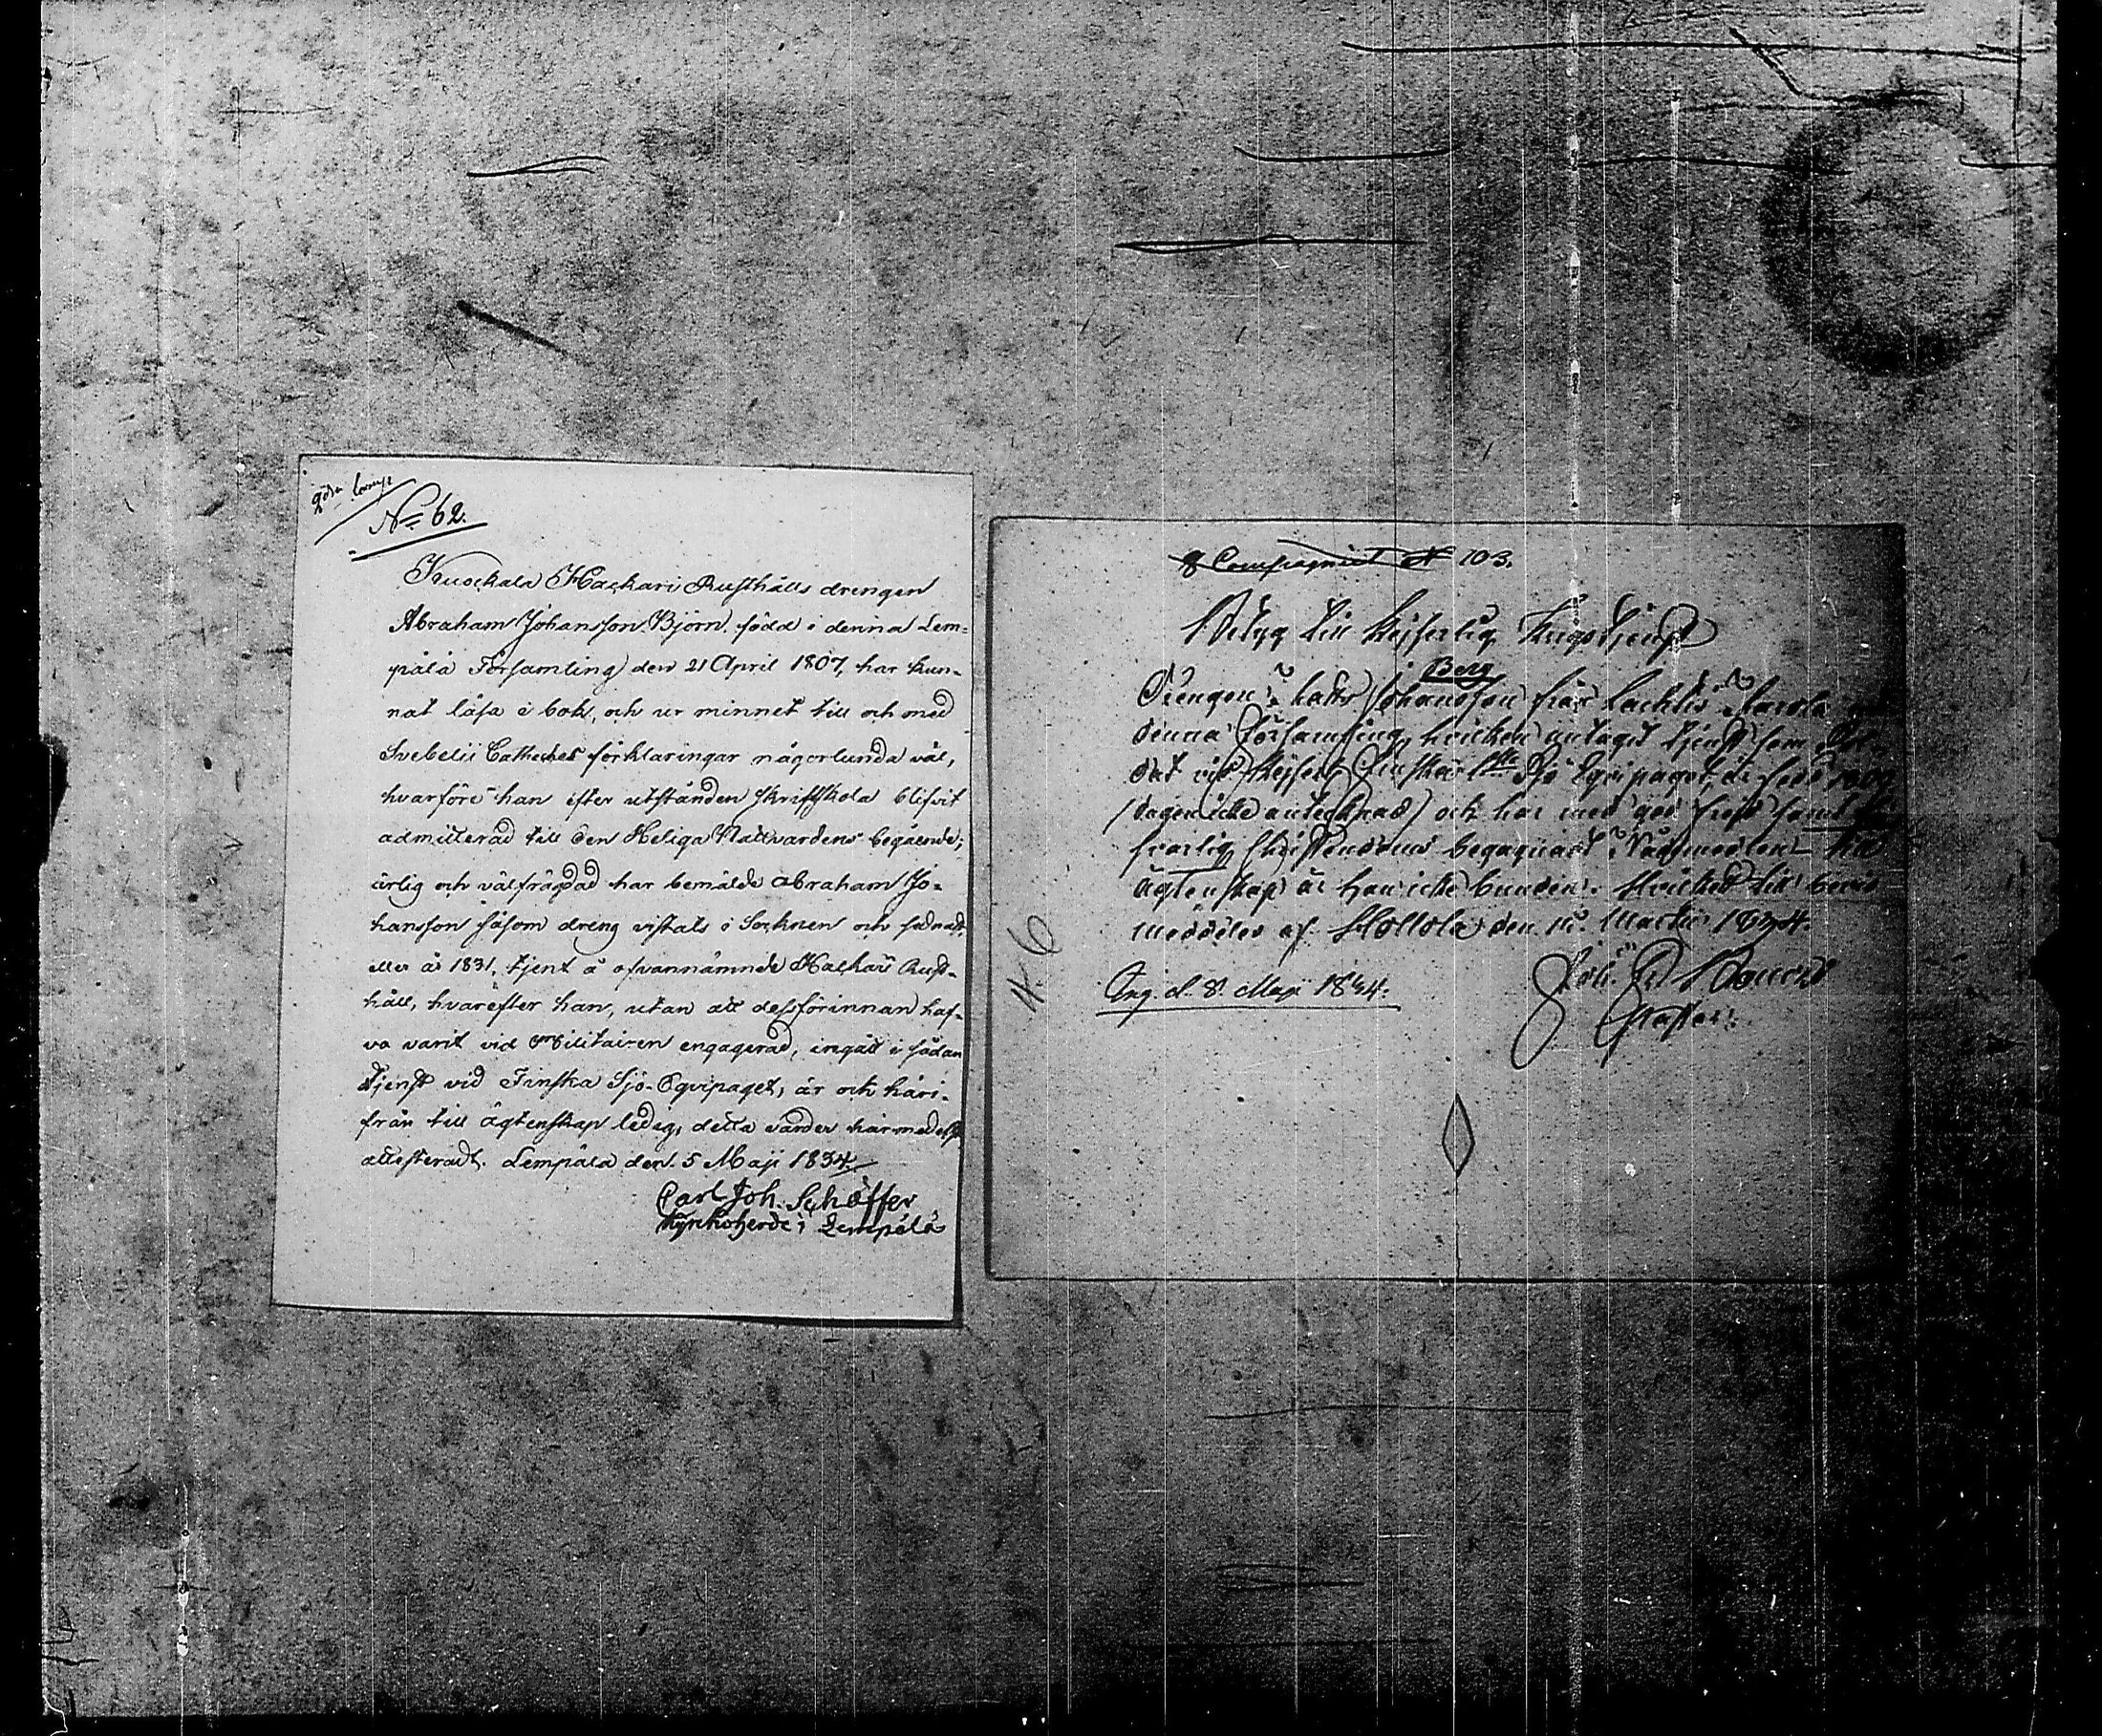 No 62.
Kuockala Hackari Rusthålls drengen
Abraham Johansson Björn, född i denna Lem-
pälä Församling den 21 April 1807, har kun-
nat läsa i bok, och ur minnet till och med
Svebelii Catheches förklaringar någorlunda väl,
hvarföre han efter utstånden skriftskola blifvit
admitterad till den Heliga Nattvardens begående;
ärlig och välfrägdad har bemälde Abraham Jo-
hansson såsom dreng vistats i Socknen och
eller år 1831, tjent å ofvannämnde Hackari Rust-
håll, hvarefter han, utan att dessförinnan haf-
va varit vid Militairen engagerad, ingått i sådan
tjenst vid Finska Sjö-Eqvipaget, är och häri-
från till ägtenskap ledig, detta varder härmedelst
attesteradt. Lempälä den 5 Maji 1834.
Carl Joh. Schöffer
Kyrkoherde i Lempälä
8 Compagniet N 103.
Betyg till Kejserlig Krigstjenst
Berg
Drengen Johansson från Lachtis
denna församling, hvilken antagit tjenst som Sol-
dat vid Kejserl. Finska 1sta Sjö Eqvipaget, är född
(dagen icke antecknad) och har med god frejd samt
Christendoms begagnat Nådemedlen. Till
Ägtenskap är han icke bunden. Hvilket till bevis
meddelas af Hollola den Martii 1834.
Ing. d. 8. Maji 1834.
46